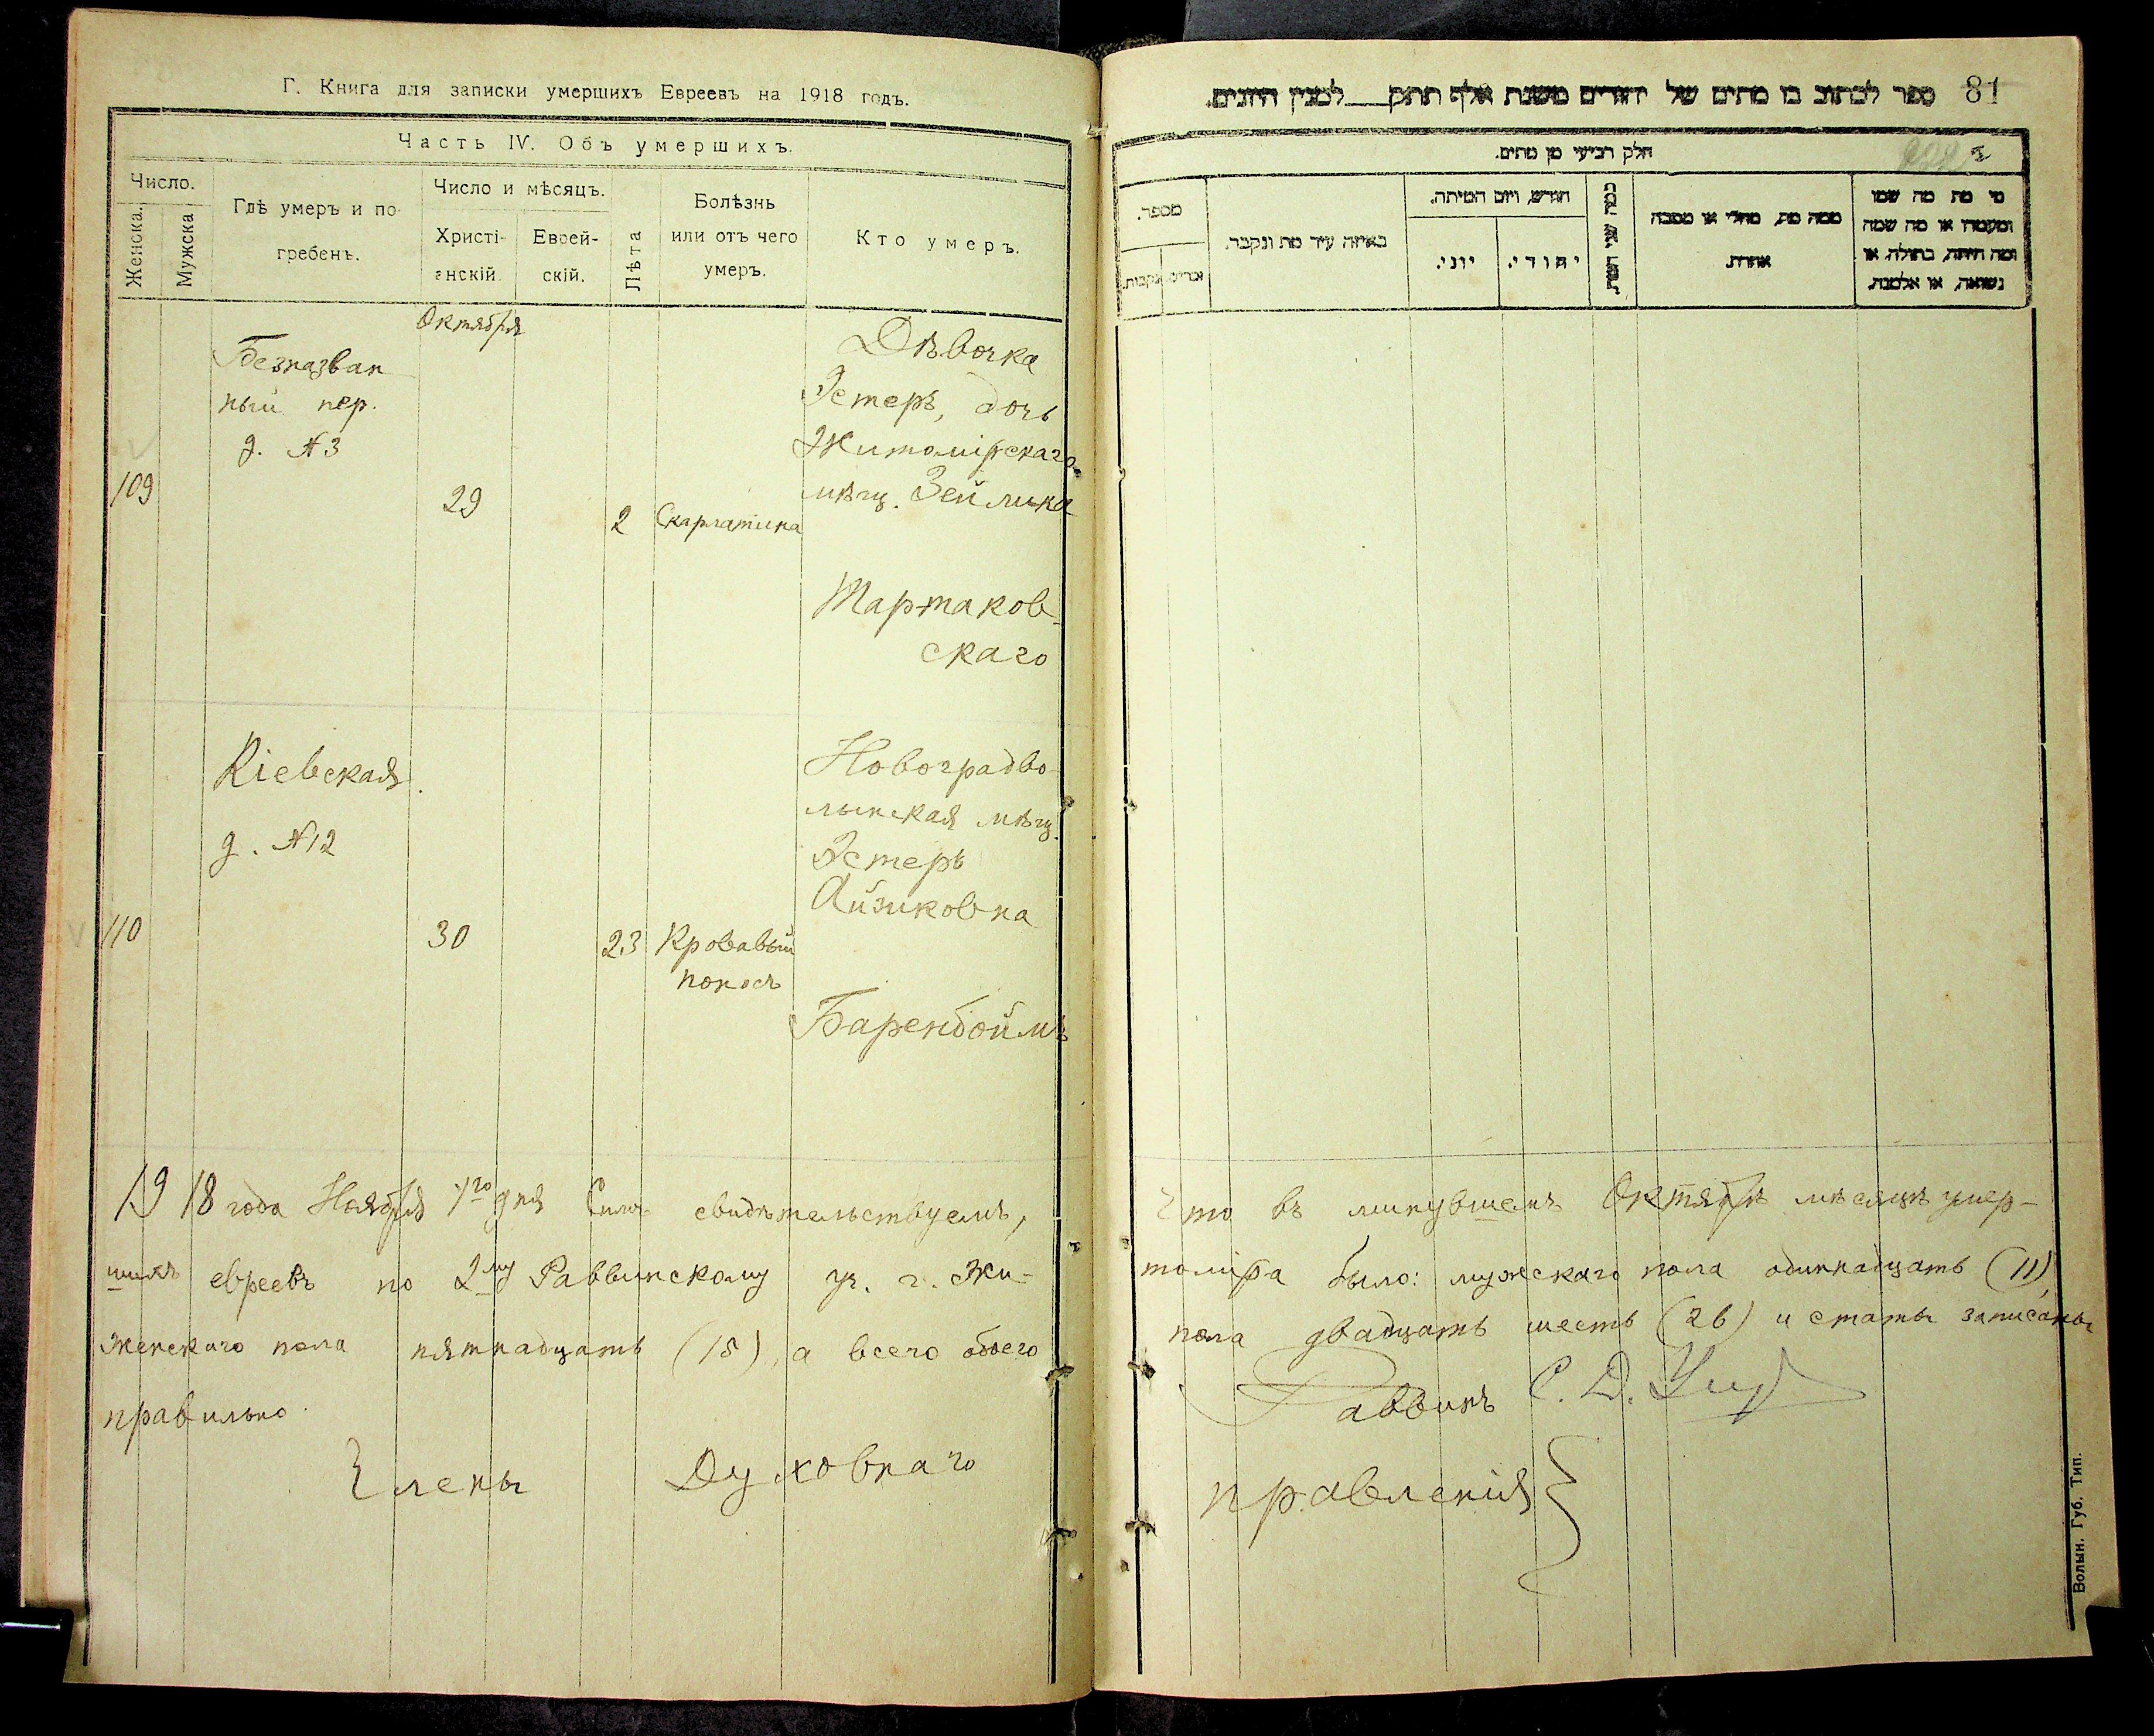 Г. Книга для записки умершихъ Евреевъ на 1918 годъ.
Часть IV. Объ умершихъ.
Число.
Женска.
Мужска
Гдѣ умеръ и по-
гребенъ.
Число и мѣсяцъ.
Христі-
анскій.
Еврей-
скій.
Лѣта
Болѣзнь
или отъ чего
умеръ.
Кто умеръ.
Октября
109
Безназван
ный пер.
д. №3
29
2
Скарлатина
Дѣвочка
Эстеръ, дочь
Житомірскаго
мѣщ. Зейлика
Тартаков-
скаго
110
Кіевская
д. №12
30
23
Кровавый
поносъ
Новоградво
лынская мѣщ.
Эстеръ
Айзиковна
Баренбоймъ
1918 года Ноября 1го дня Симъ свидѣтельствуемъ,
шихъ евреевъ по 2му Раввинскому уч. г. Жи-
женскаго пола пятнадцать (15), а всего обоего
правильно.
Члены Духовнаго
81
ספר לכתוב בו מתים של יהודים משנת אלף תתק___למנין היונים.
חלק רביעי מן מתים.
מספר.
זכרים
נקבות.
באיזה עיר מת ונקבר.
חודש, ויום המיתה.
יוני.
יהודי.
כמה שני המת.
ממה מת, מחלי או מסבה
אחרת.
מי מת מה שמו
ומעמדו או מה שמה
ומה היתה, בתולה, או
נשואה, או אלמנה.
Что въ минувшемъ Октябрѣ мѣсяцѣ умер-
томіра было: мужскаго пола одиннадцать (11),
пола двадцать шесть (26) и статьи записаны
Раввинъ С. Д.
правленія
Волын. Губ. Тип.